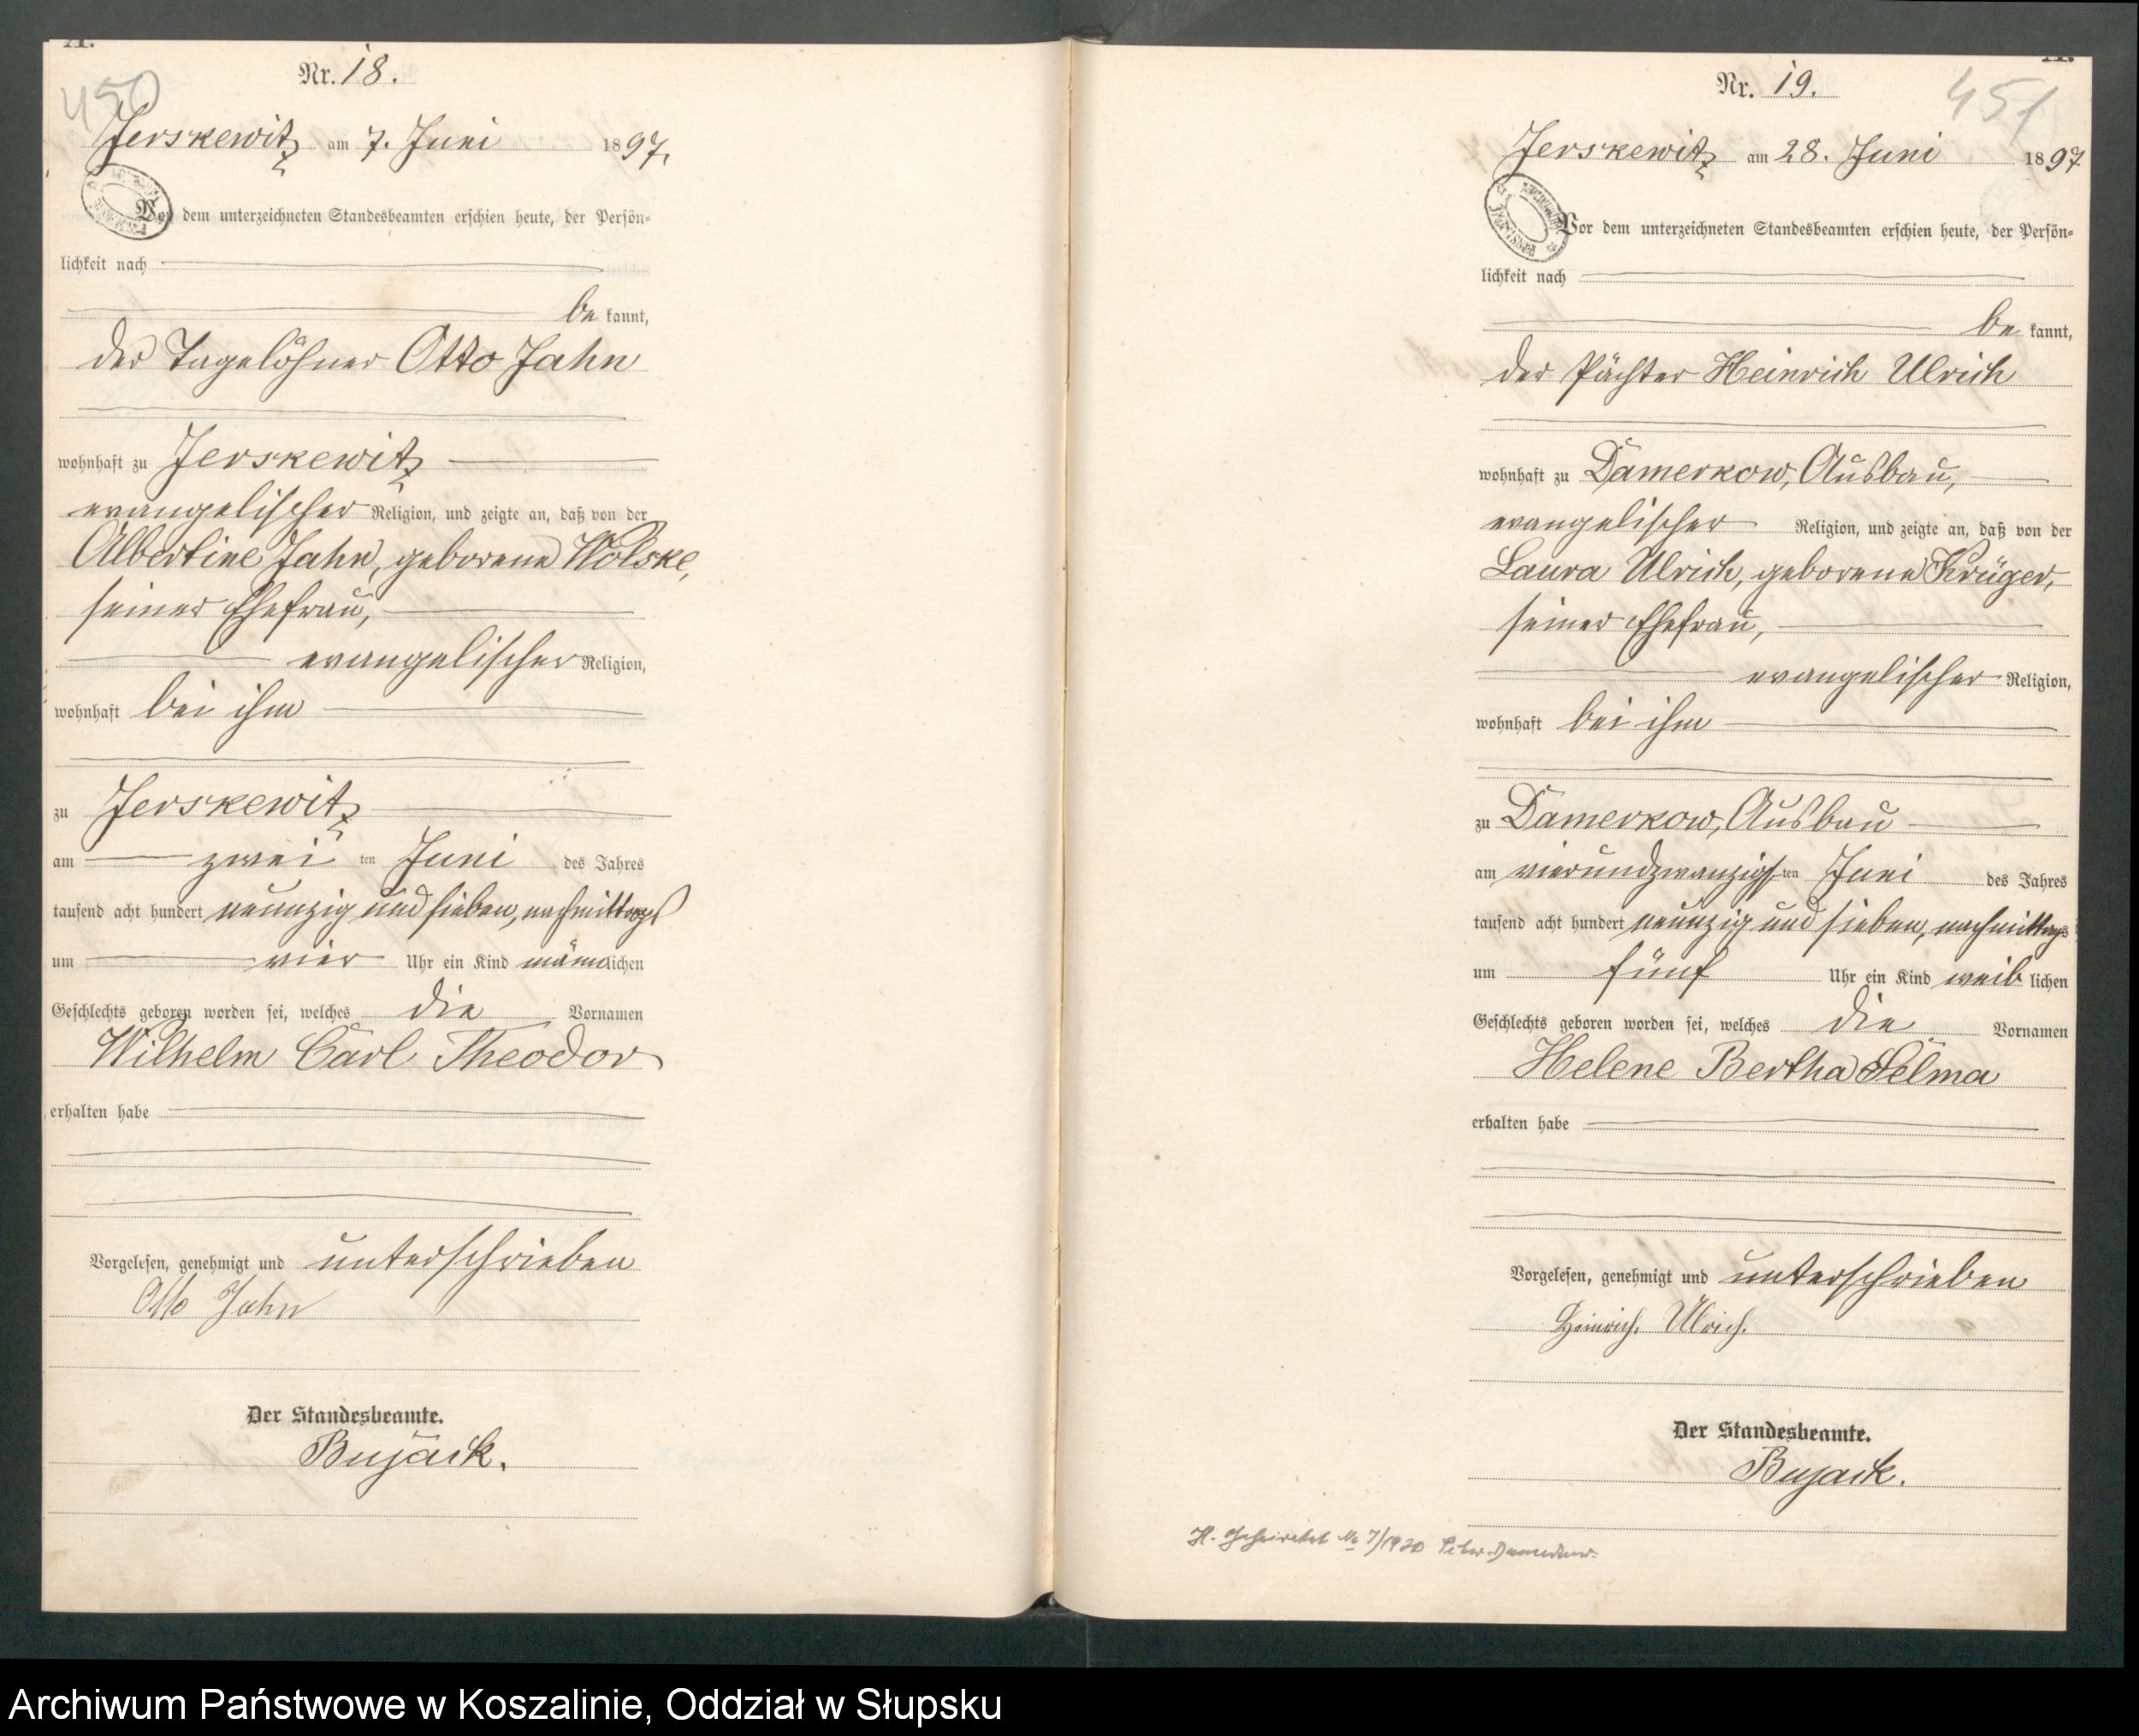 A.
Nr. 18.
450
Jerskewitz am 7. Juni 1897.
Vor dem unterzeichneten Standesbeamten erschien heute, der Persön-
lichkeit nach
be kannt,
der Tagelöhner Otto Jahn
wohnhaft zu Jerskewitz
evangelischer Religion, und zeigte an, daß von der
Albertine Jahn, geborene Wolske,
seiner Ehefrau,
evangelischer Religion,
wohnhaft bei ihm
zu Jerskewitz
am zwei ten Juni des Jahres
tausend acht hundert neunzig und sieben, nachmittags
um vier Uhr ein Kind männlichen
Geschlechts geboren worden sei, welches die Vornamen
Wilhelm Carl Theodor
erhalten habe
Vorgelesen, genehmigt und unterschrieben
Otto Jahn
Der Standesbeamte.
Bujack.
A.
Nr. 19.
451
Jerskewitz am 28. Juni 1897
Vor dem unterzeichneten Standesbeamten erschien heute, der Persön-
lichkeit nach
be kannt,
der Pächter Heinrich Ulrich
wohnhaft zu Damerkow, Ausbau,
evangelischer Religion, und zeigte an, daß von der
Laura Ulrich, geborene Krüger,
seiner Ehefrau,
evangelischer Religion,
wohnhaft bei ihm
zu Damerkow, Ausbau
am vierundzwanzigsten Juni des Jahres
tausend acht hundert neunzig und sieben, nachmittags
um fünf Uhr ein Kind weib lichen
Geschlechts geboren worden sei, welches die Vornamen
Helene Bertha Selma
erhalten habe
Vorgelesen, genehmigt und unterschrieben
Heinrich Ulrich.
Der Standesbeamte.
Bujack.
H. Geheiratet No 7/1920
Archiwum Państwowe w Koszalinie, Oddział w Słupsku